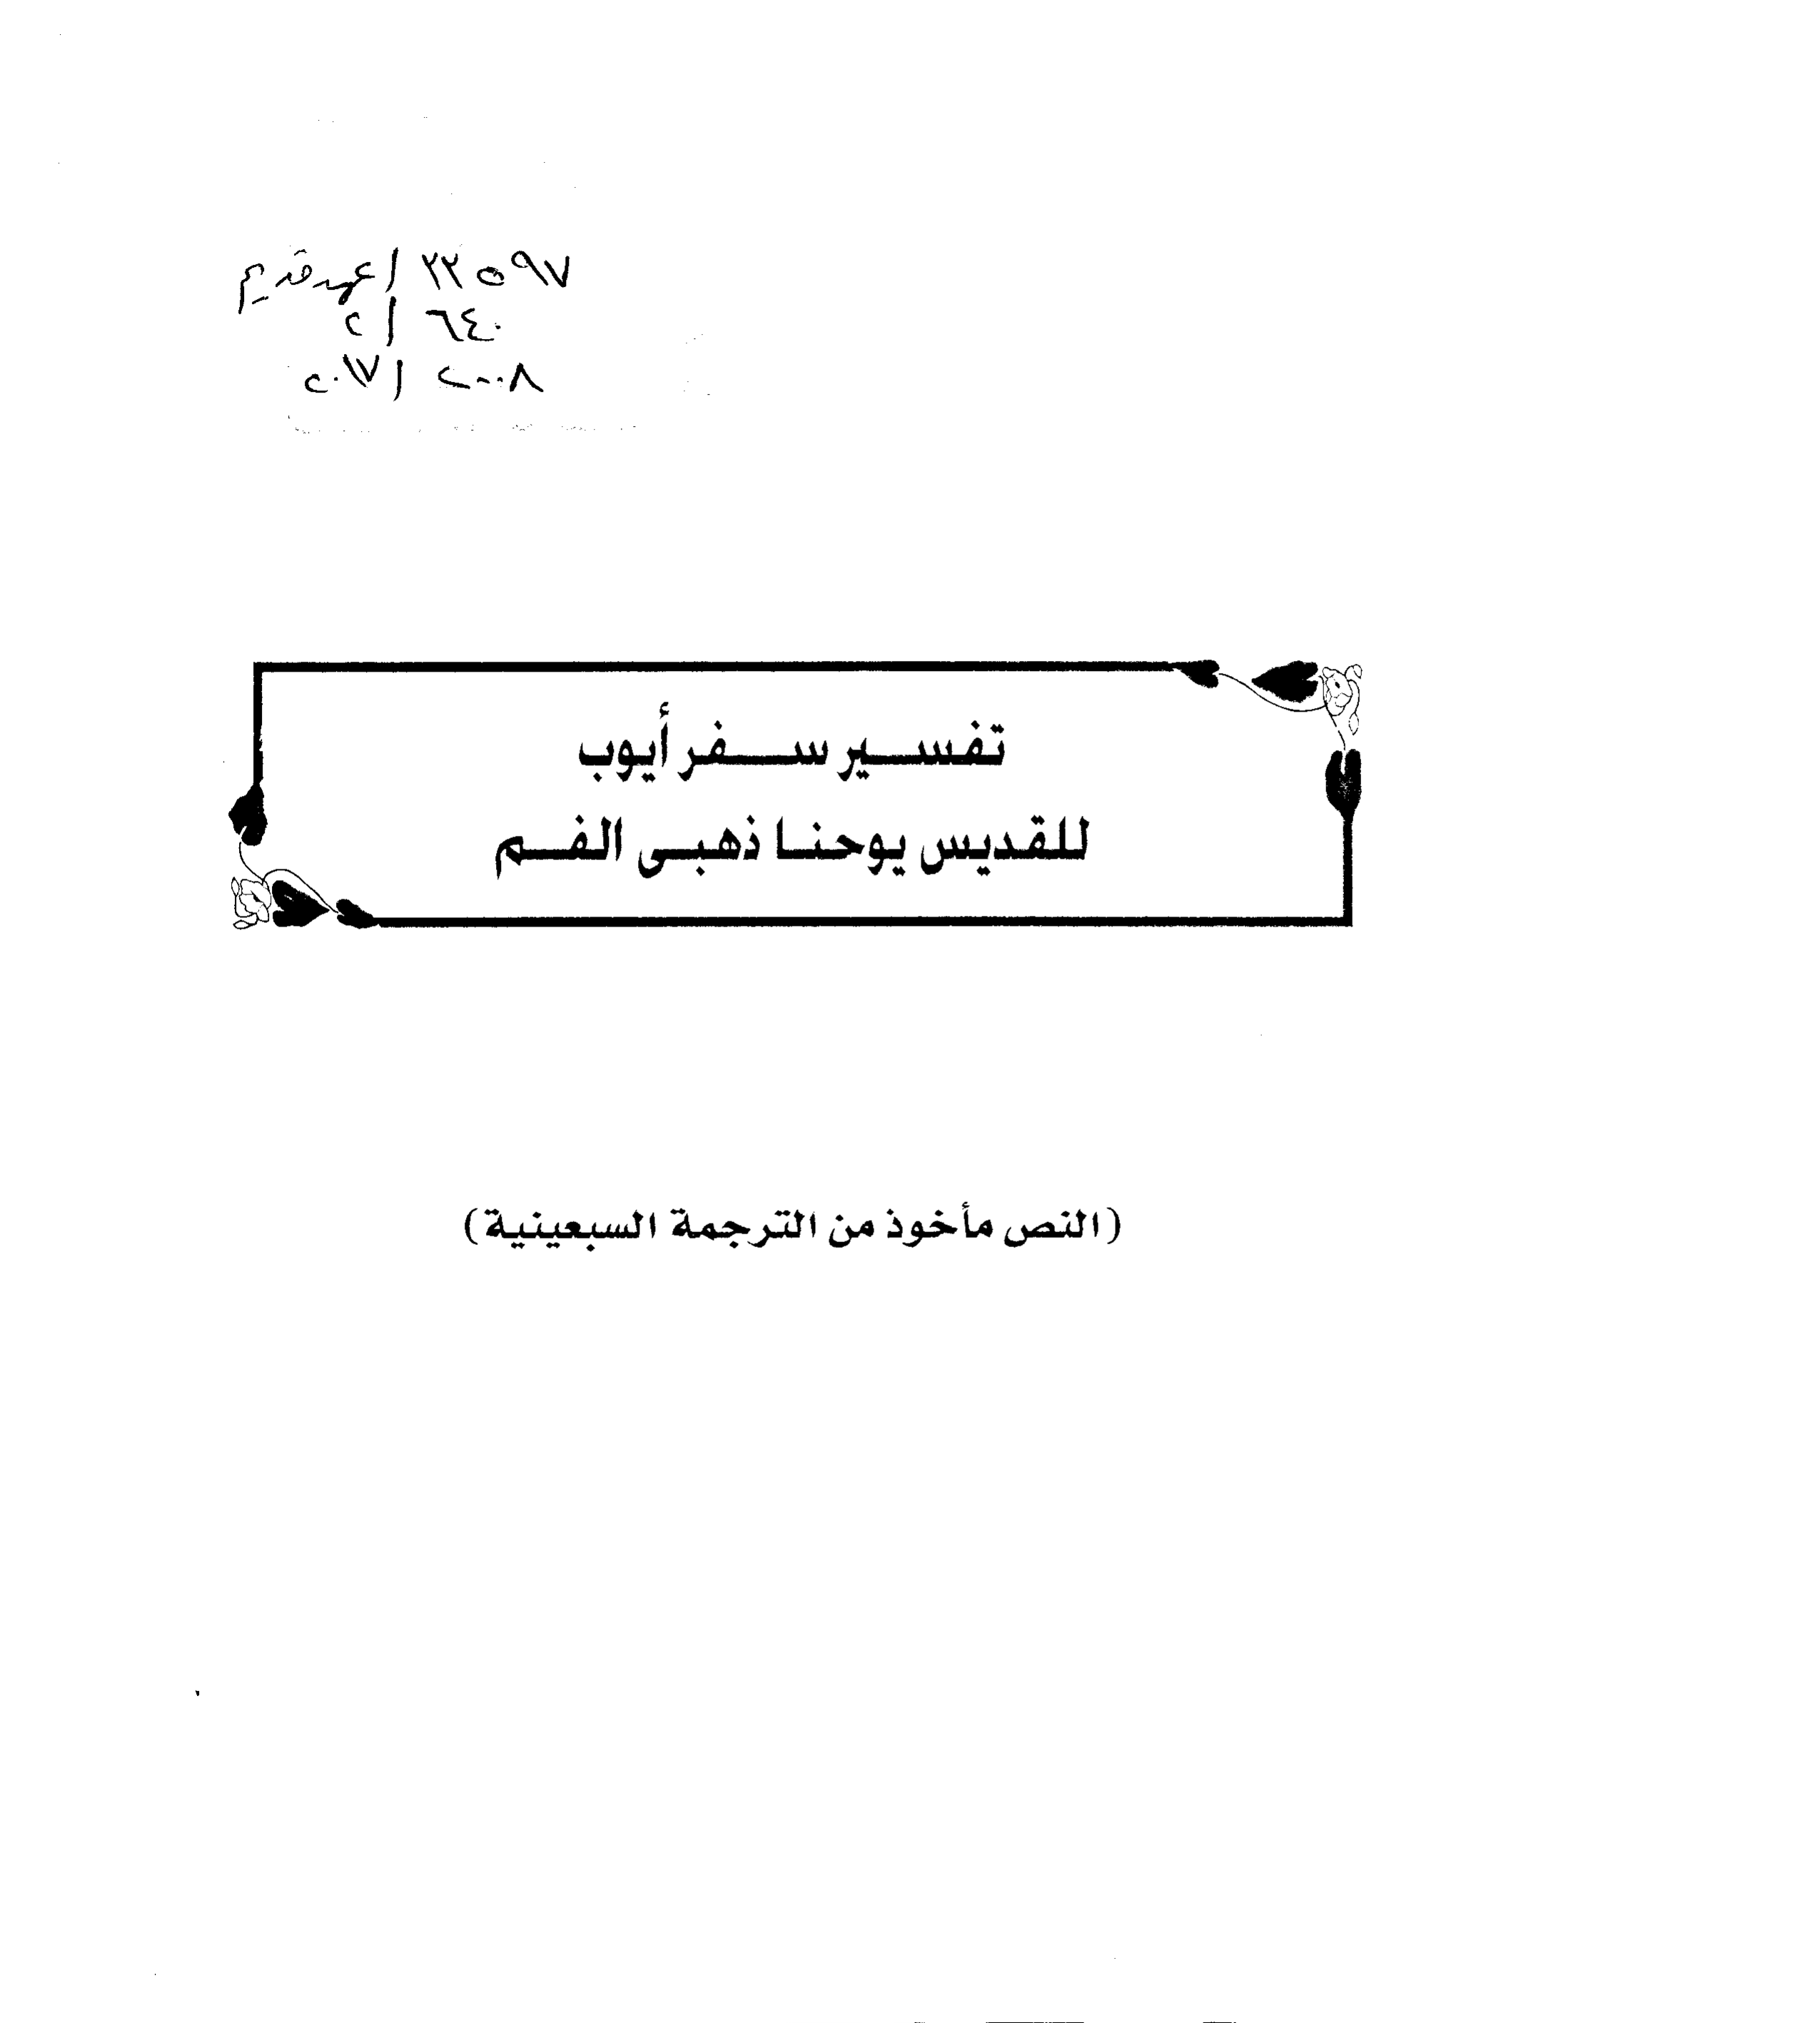 ٢٢٥٩٧ / عهد قديم
٦٤٠ / ٢
٢٠٠٨ / ٢٠١٧
تفسير سفر أيوب
للقديس يوحنا ذهبى الفم
(النص مأخوذ من الترجمة السبعينية)